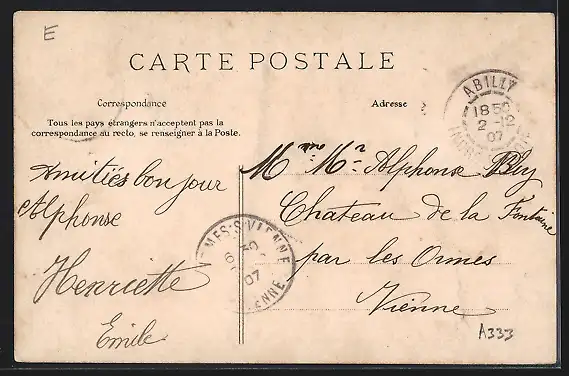 E
CARTE POSTALE
Correspondance
Adresse
Tous les pays étrangers n'acceptent pas la
correspondance au recto, se renseigner à la Poste.
ABILLY
18 50
2 -12
07
Amitiés bonjour
Alphonse
Henriette
Emile
Mme Mr Alphonse Bly
Chateau de la Fontaine
par les Ormes
Vienne
ORMES-S-VIENNE
07
VIENNE
A333